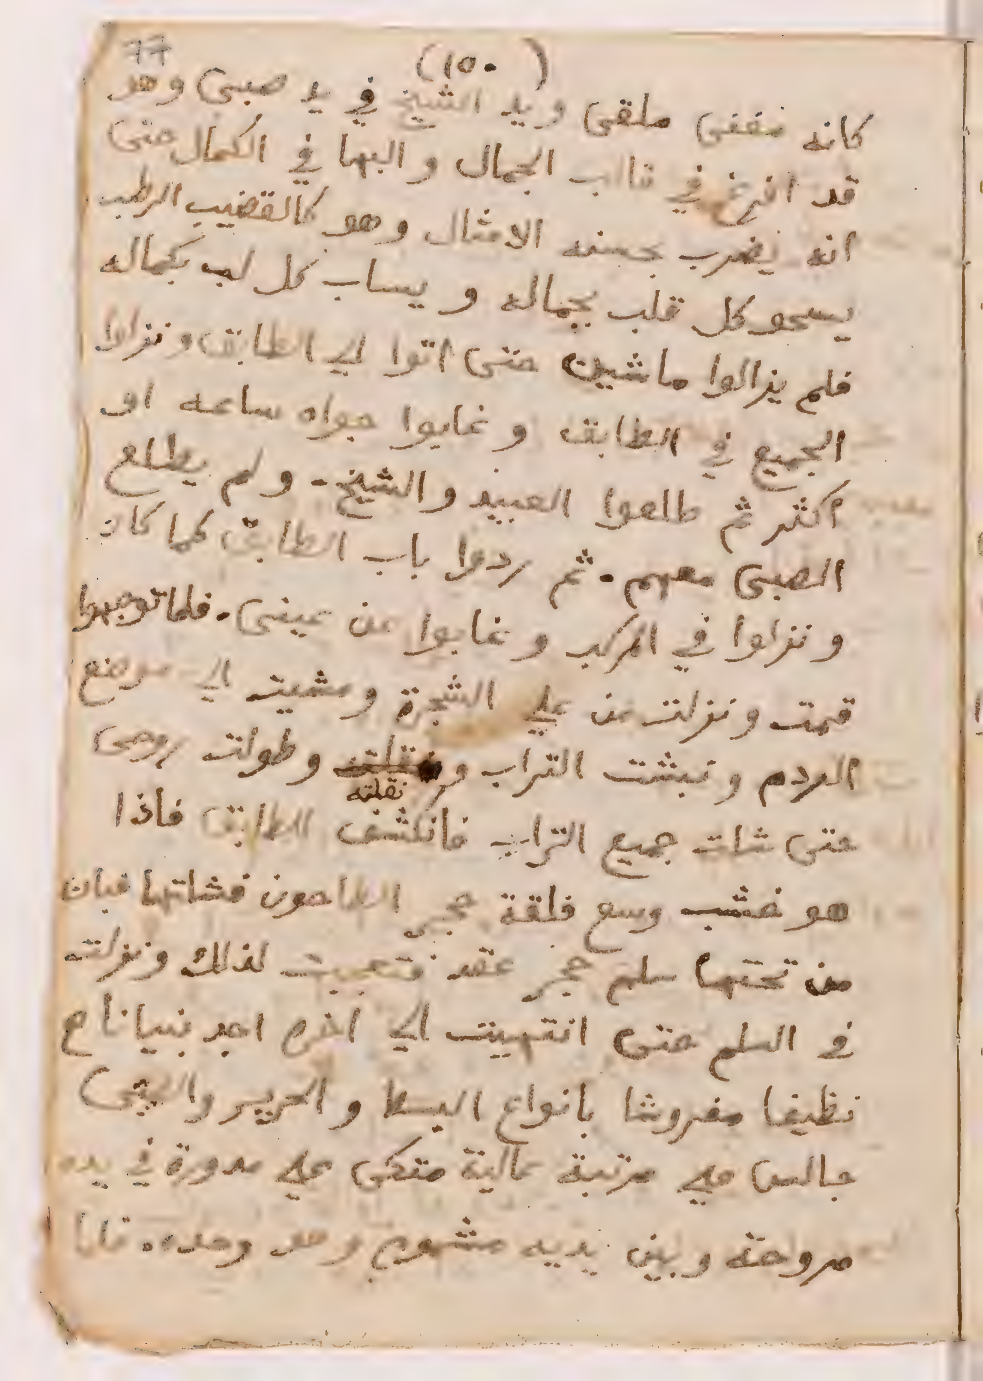 77
(١٥٠)
كانه مففى ملقى ويد الشيخ في يد صبى وهو
قد افرغ في قالب الجمال والبها في الكمال حتى
انه يضرب بحسنه الامثال وهو كالقضيب الرطب
يسحو كل قلب بجماله ويساب كل لب بكماله
فلم يزالوا ماشين حتى اتوا الي الطابق ونزلوا
الجميع في الطابق وغابوا جواه ساعه او
أكثر ثم طلعوا العبيد والشيخ . ولم يطلع
الصبى معهم . ثم ردوا باب الطابق كما كان
ونزلوا في المركب وغابوا عن عينى . فلما توجهوا
قمت ونزلت من علي الشجرة ومشيت الي موضع
الردم ونبشت التراب ونقلته وطولت روحى
حتى شلت جميع التراب فانكشف الطابق فاذا
هو خشب وسع فلقة حجر الطاحون فشلتها فبان
من تحتها سلم حجر عقد فتعجبت لذلك ونزلت
في السلم حتى انتهيت الي اخره اجد بنيانا م
نظيفا مفروشا بانواع البسط والحرير والصبى
جالس علي مرتبة عالية متكى علي مدورة في يده
مروحة وبين يديه مشموم وهو وحده . فلما